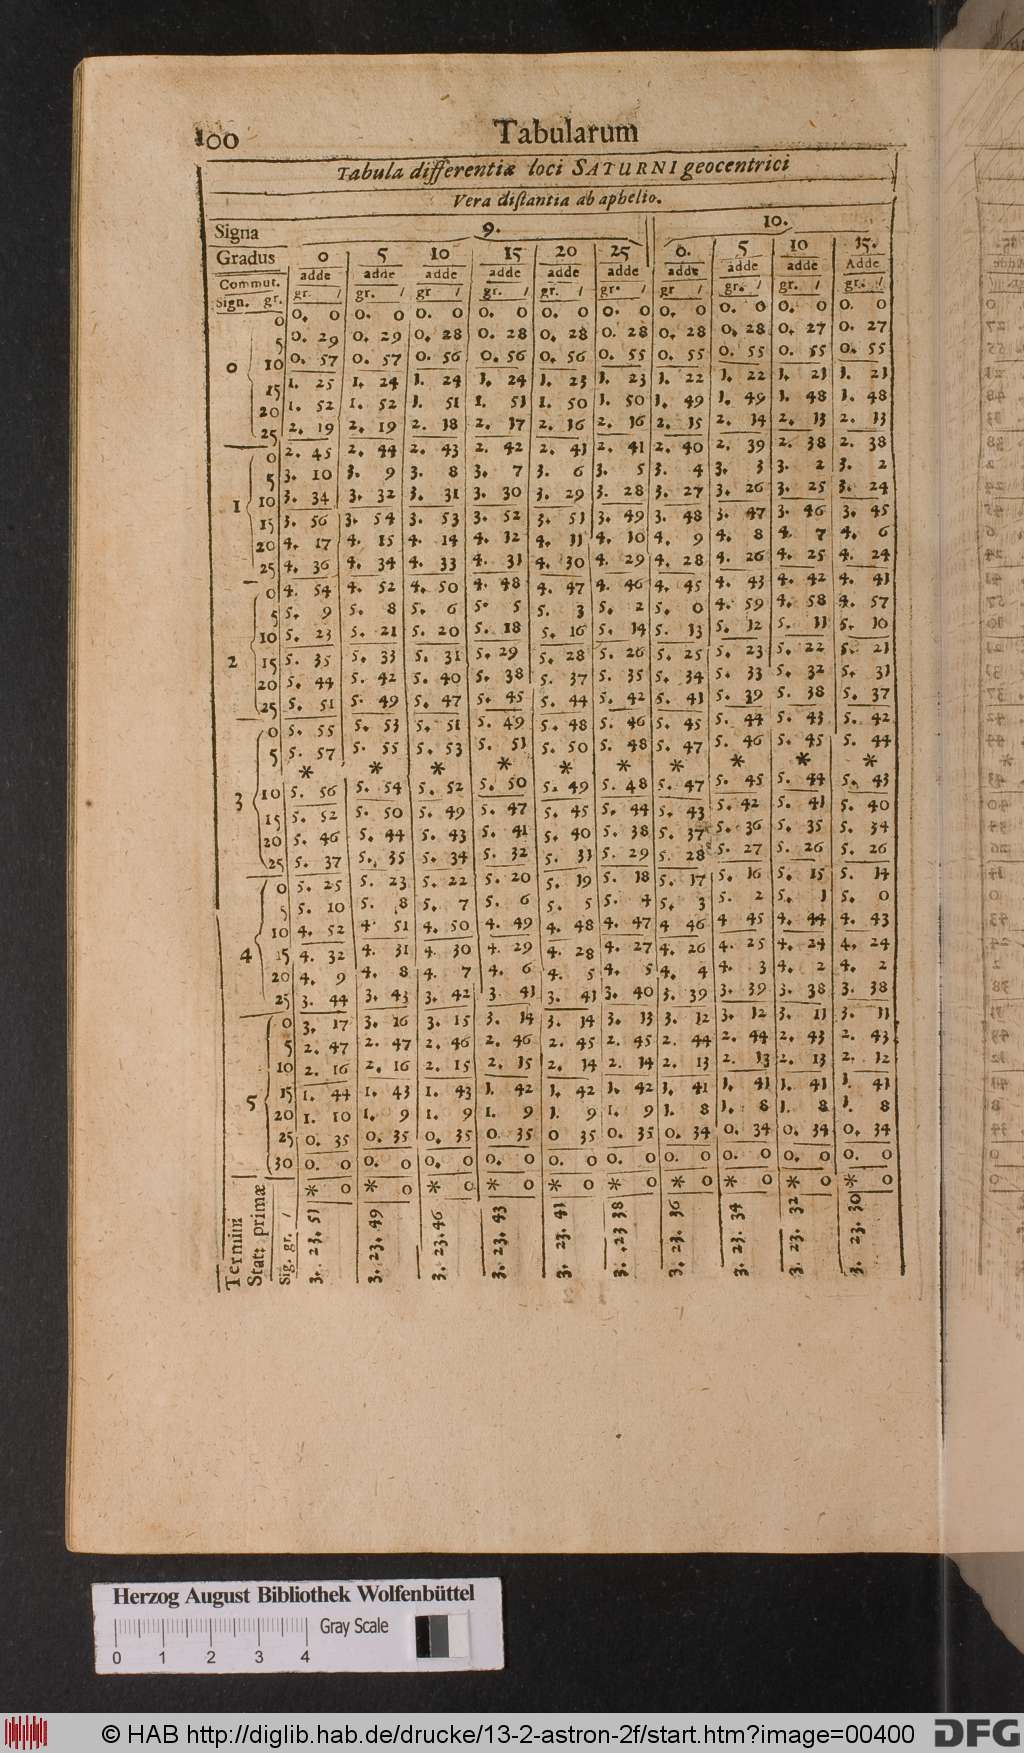 100 Tabularum
Tabula differentiæ loci SATURNI geocentrici
Vera distantia ab aphelio.
Signa 9. 10.
Gradus 0 5 10 15 20 25 0. 5 10 15.
Commut. adde adde adde adde adde adde adde adde adde Adde
Sign. gr. gr. / gr. / gr / gr. / gr. / gr. / gr / gr. / gr. / gr. /
0 0 0. 0 0. 0 0. 0 0. 0 0. 0 0. 0 0. 0 0. 0 0. 0 0. 0
5 0. 29 0. 29 0. 28 0. 28 0. 28 0. 28 0. 28 0. 28 0. 27 0. 27
10 0. 57 0. 57 0. 56 0. 56 0. 56 0. 55 0. 55 0. 55 0. 55 0. 55
15 1. 25 1. 24 1. 24 1. 24 1. 23 1. 23 1. 22 1. 22 1. 21 1. 21
20 1. 52 1. 52 1. 51 1. 51 1. 50 1. 50 1. 49 1. 49 1. 48 1. 48
25 2. 19 2. 19 2. 18 2. 17 2. 16 2. 16 2. 15 2. 14 2. 13 2. 13
1 0 2. 45 2. 44 2. 43 2. 42 2. 41 2. 41 2. 40 2. 39 2. 38 2. 38
5 3. 10 3. 9 3. 8 3. 7 3. 6 3. 5 3. 4 3. 3 3. 2 3. 2
10 3. 34 3. 32 3. 31 3. 30 3. 29 3. 28 3. 27 3. 26 3. 25 3. 24
15 3. 56 3. 54 3. 53 3. 52 3. 51 3. 49 3. 48 3. 47 3. 46 3. 45
20 4. 17 4. 15 4. 14 4. 12 4. 11 4. 10 4. 9 4. 8 4. 7 4. 6
25 4. 36 4. 34 4. 33 4. 31 4. 30 4. 29 4. 28 4. 26 4. 25 4. 24
2 0 4. 54 4. 52 4. 50 4. 48 4. 47 4. 46 4. 45 4. 43 4. 42 4. 41
5 5. 9 5. 8 5. 6 5. 5 5. 3 5. 2 5. 0 4. 59 4. 58 4. 57
10 5. 23 5. 21 5. 20 5. 18 5. 16 5. 14 5. 13 5. 12 5. 11 5. 10
15 5. 35 5. 33 5. 31 5. 29 5. 28 5. 26 5. 25 5. 23 5. 22 5. 21
20 5. 44 5. 42 5. 40 5. 38 5. 37 5. 35 5. 34 5. 33 5. 32 5. 31
25 5. 51 5. 49 5. 47 5. 45 5. 44 5. 42 5. 41 5. 39 5. 38 5. 37
3 0 5. 55 5. 53 5. 51 5. 49 5. 48 5. 46 5. 45 5. 44 5. 43 5. 42
5 5. 57 5. 55 5. 53 5. 51 5. 50 5. 48 5. 47 5. 46 5. 45 5. 44
* * * * * * * * * *
10 5. 56 5. 54 5. 52 5. 50 5. 49 5. 48 5. 47 5. 45 5. 44 5. 43
15 5. 52 5. 50 5. 49 5. 47 5. 45 5. 44 5. 43 5. 42 5. 41 5. 40
20 5. 46 5. 44 5. 43 5. 41 5. 40 5. 38 5. 37 5. 36 5. 35 5. 34
25 5. 37 5. 35 5. 34 5. 32 5. 31 5. 29 5. 28 5. 27 5. 26 5. 26
4 0 5. 25 5. 23 5. 22 5. 20 5. 19 5. 18 5. 17 5. 16 5. 15 5. 14
5 5. 10 5. 8 5. 7 5. 6 5. 5 5. 4 5. 3 5. 2 5. 1 5. 0
10 4. 52 4. 51 4. 50 4. 49 4. 48 4. 47 4 46 4 45 4. 44 4. 43
15 4. 32 4. 31 4. 30 4. 29 4. 28 4. 27 4. 26 4. 25 4. 24 4. 24
20 4. 9 4. 8 4. 7 4. 6 4. 5 4. 5 4. 4 4. 3 4. 2 4. 2
25 3. 44 3. 43 3. 42 3. 41 3. 41 3. 40 3. 39 3. 39 3. 38 3. 38
5 0 3. 17 3. 16 3. 15 3. 14 3. 14 3. 13 3. 12 3. 12 3. 11 3. 11
5 2. 47 2. 47 2. 46 2. 46 2. 45 2. 45 2. 44 2. 44 2. 43 2. 43
10 2. 16 2. 16 2. 15 2. 15 2. 14 2. 14 2. 13 2. 13 2. 13 2. 12
15 1. 44 1. 43 1. 43 1. 42 1. 42 1. 42 1. 41 1. 41 1. 41 1. 41
20 1. 10 1. 9 1. 9 1. 9 1. 9 1. 9 1. 8 1. 8 1. 8 1. 8
25 0. 35 0. 35 0. 35 0. 35 0 35 0. 35 0. 34 0. 34 0. 34 0. 34
30 0. 0 0. 0 0. 0 0. 0 0. 0 0. 0 0. 0 0. 0 0. 0 0. 0
* 0 * 0 * 0 * 0 * 0 * 0 * 0 * 0 * 0 * 0
Termini
Stat: primæ
Sig. gr. /
3. 23. 51
3. 23. 49
3. 23. 46
3. 23. 43
3. 23. 41
3. 23 38
3. 23. 36
3. 23. 34
3. 23. 32
3. 23. 30
Herzog August Bibliothek Wolfenbüttel
Gray Scale
0 1 2 3 4
© HAB http://diglib.hab.de/drucke/13-2-astron-2f/start.htm?image=00400
DFG